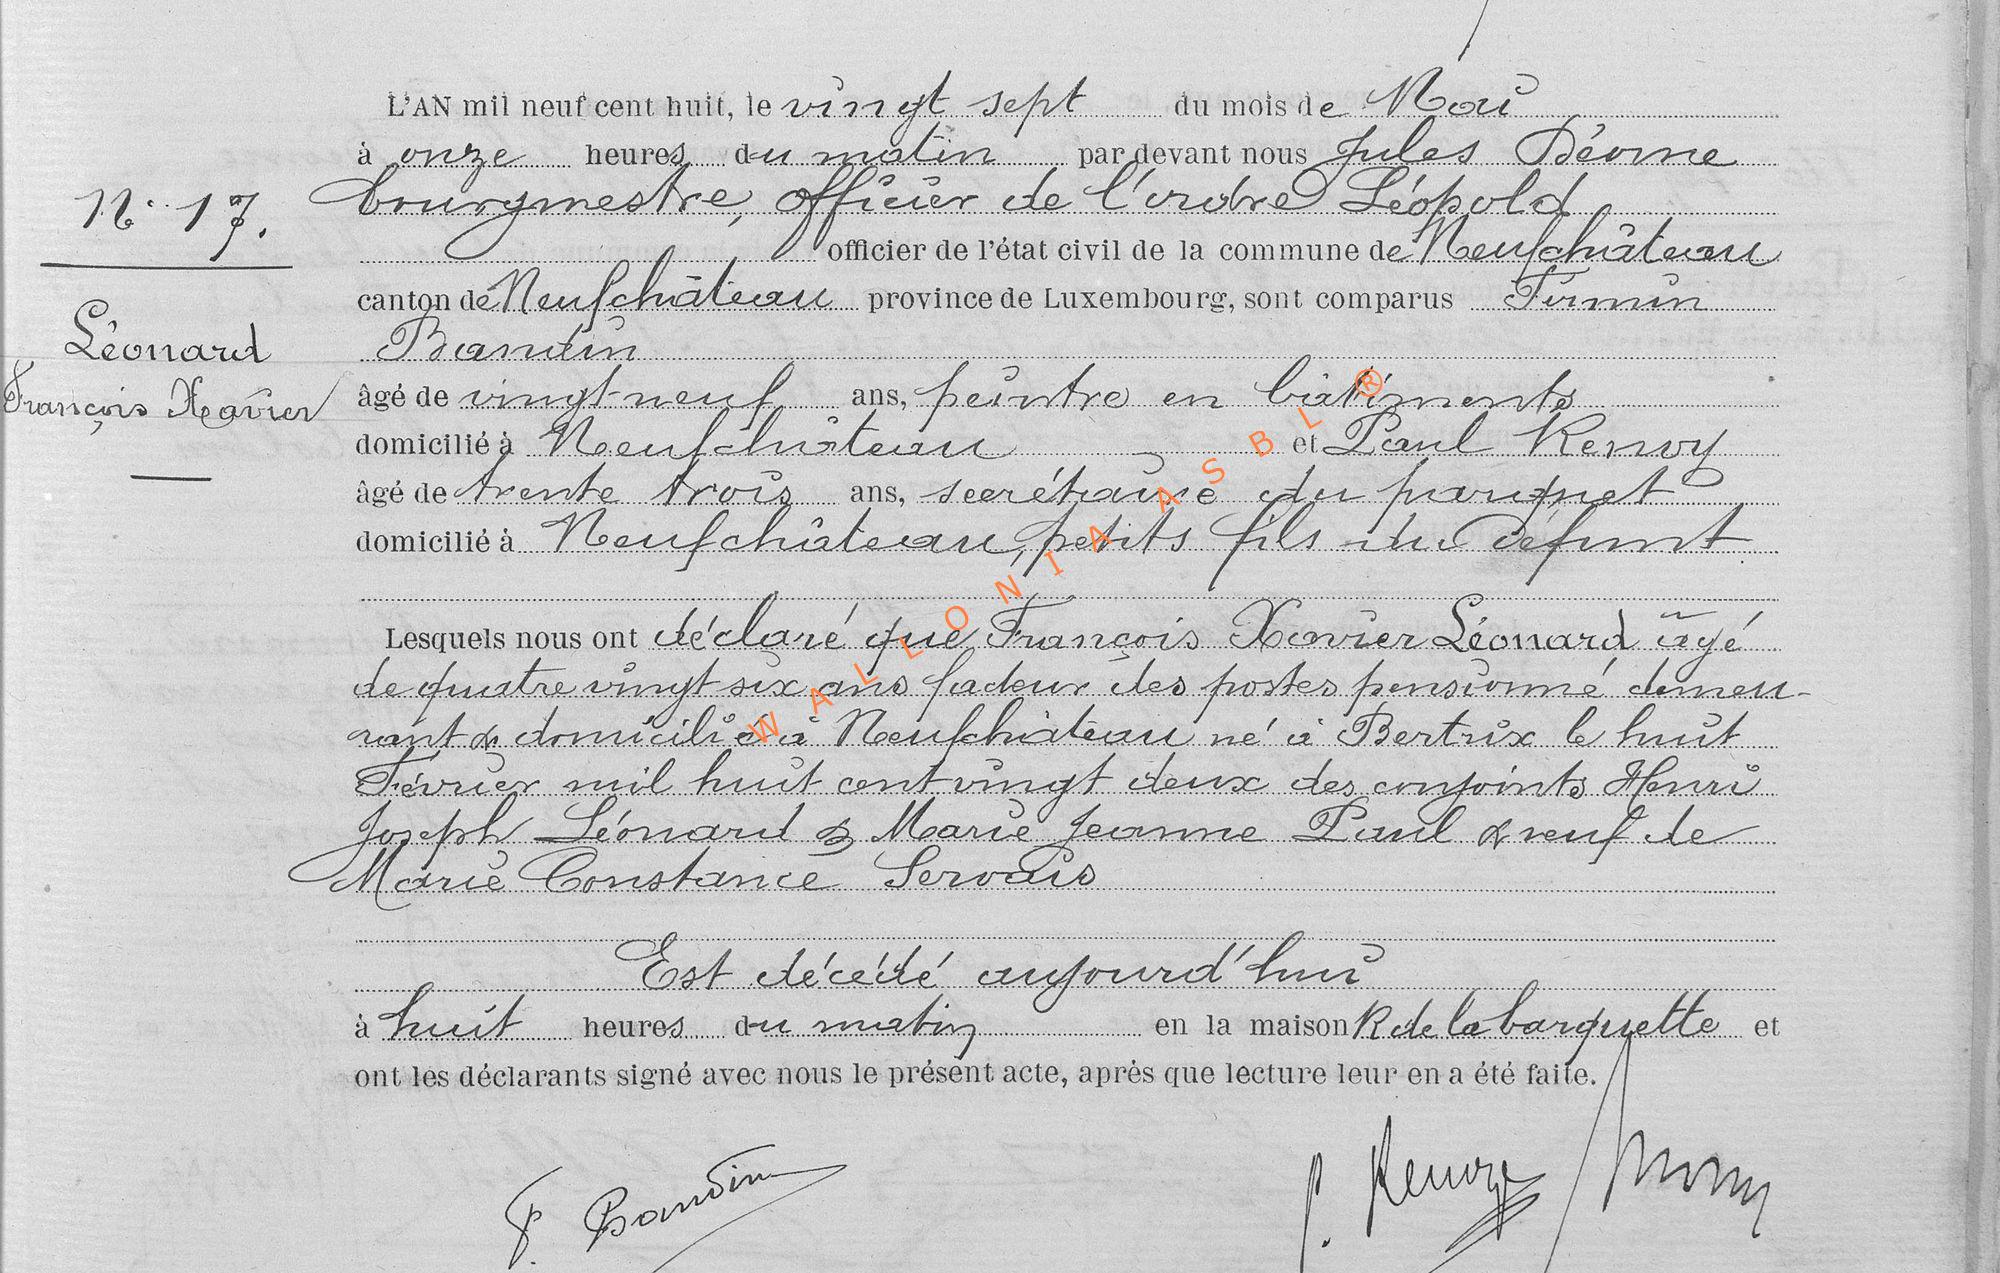 L'AN mil neuf cent huit, le vingt sept du mois de Mai
à onze heures du matin par devant nous Jules
N° 17. bourgmestre, officier de l'ordre Léopold
officier de l'état civil de la commune de Neufchâteau
canton de Neufchâteau province de Luxembourg, sont comparus Firmin
Léonard Baudin
François Xavier âgé de vingt-neuf ans, peintre en bâtiments
domicilié à Neufchâteau et Paul Renoy
âgé de trente trois ans, secrétaire du parquet
domicilié à Neufchâteau, petits fils du défunt
Lesquels nous ont déclaré que François Xavier Léonard âgé
de quatre vingt six ans facteur des postes pensionné demeu-
rant & domicilié à Neufchâteau né à Bertrix le huit
Février mil huit cent vingt deux des conjoints Henri
Joseph Léonard & Marie Jeanne Paul & veuf de
Marie Constance Servais
Est décédé aujourd'hui
à huit heures du matin en la maison R de la barquette et
ont les déclarants signé avec nous le présent acte, après que lecture leur en a été faite.
F. Baudin P. Renoy
WALLONIA ASBL ®